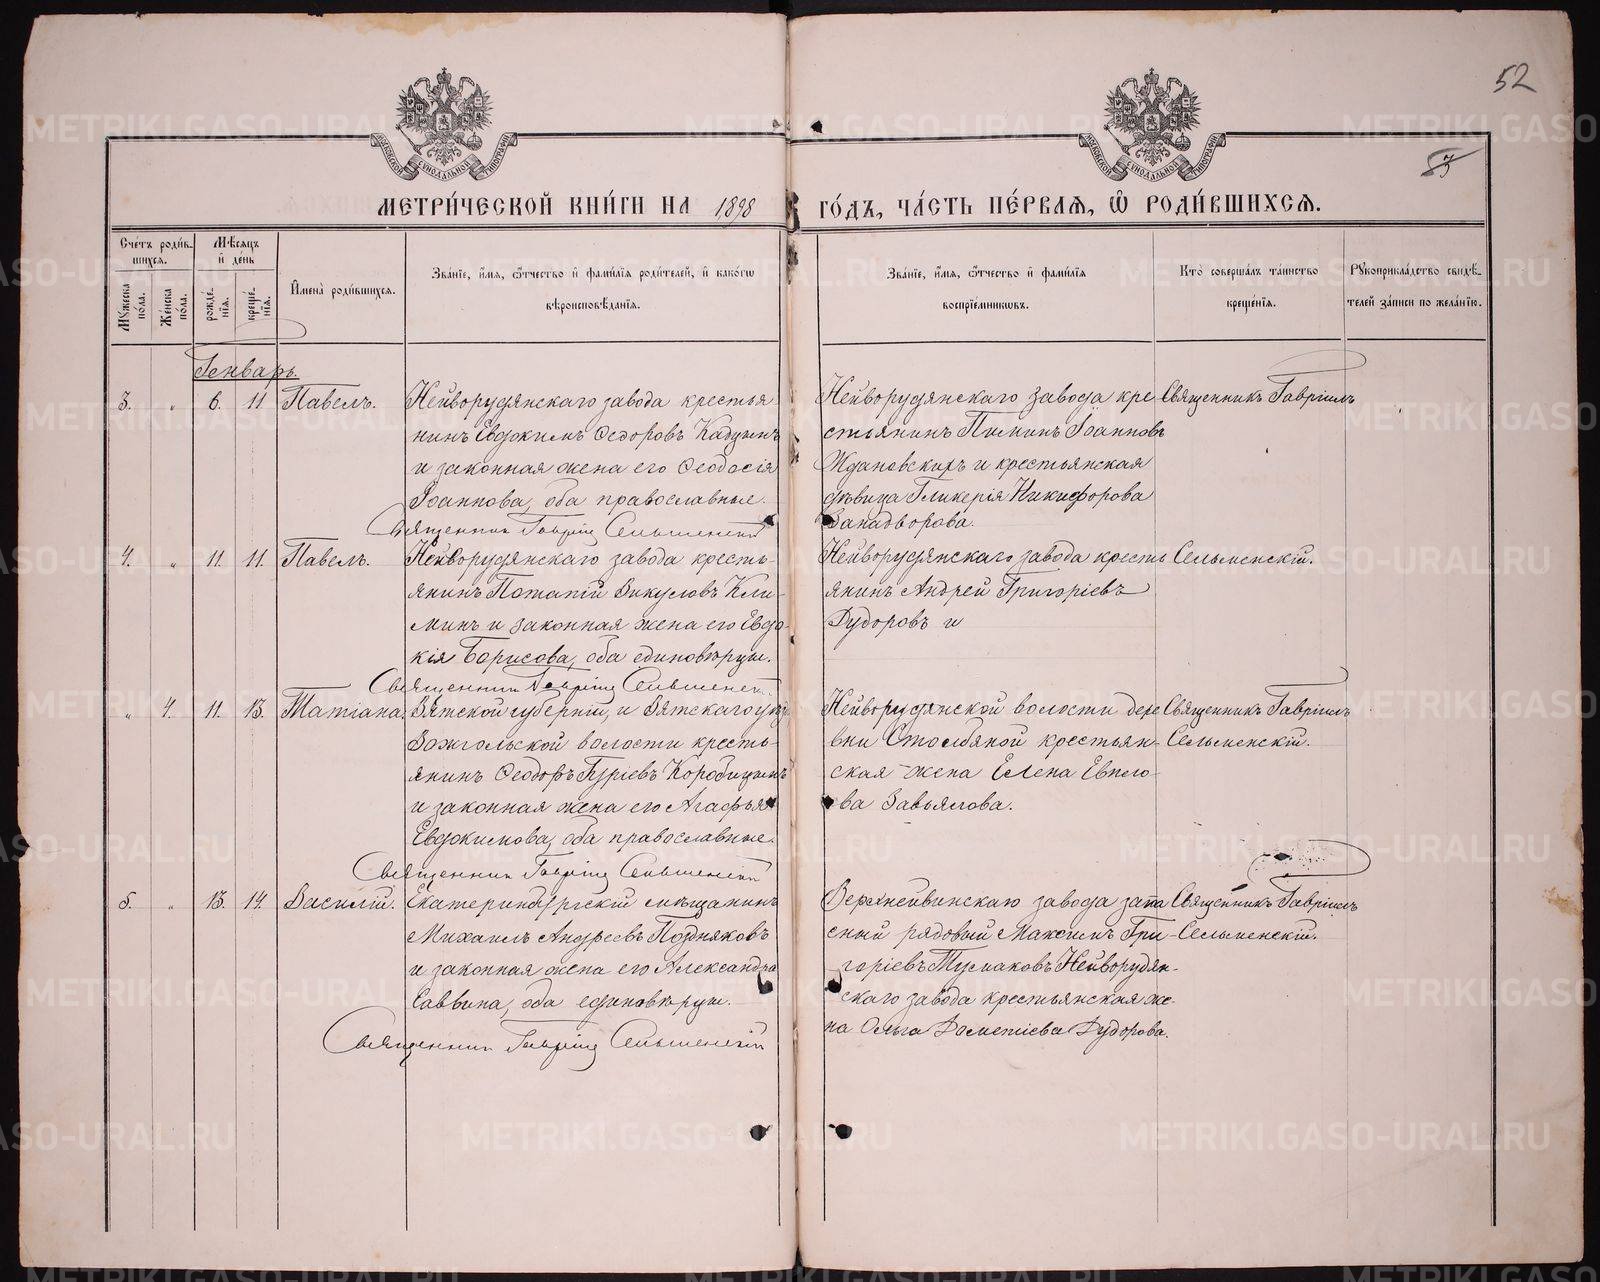 52
53
МЕТРИ́ЧЕСКОЙ КНИ́ГИ НА 1898 ГО́ДЪ, ЧА́СТЬ ПЕ́РВАЯ, Ѡ РОДИ́ВШИХСЯ.
Сче́тъ роди́вшихся.
Мꙋ́жеска по́ла.
Же́нска по́ла.
Мѣ́сяцъ и де́нь
рожде́нїя.
креще́нїя.
Имена̀ роди́вшихся.
Зва́нїе, и́мя, ѻ́тчество и фами́лїя роди́телей, и како́гѡ
вѣроисповѣ́данїя.
Зва́нїе, и́мя, ѻ́тчество и фами́лїя
воспрїе́мникѡвъ.
Кто̀ соверша́лъ та́инство
креще́нїя.
Рꙋкоприкла́дство свидѣ́-
телей за́писи по жела́нїю.
Генварь.
3. " 6. 11 Павелъ.
Нейворудянскаго завода крестья
нинъ Евдокимъ Ѳедоровъ
и законная жена его Ѳеодосія
Іоаннова, оба православные.
Священник Гавріил Сельменскій
Нейворудянскаго завода кре
стьянинъ Пименъ Іоанновъ
Ждановскихъ и крестьянская
дѣвица Гликерія Никифорова
Занадворова.
Священникъ Гавріилъ
4. " 11. 11. Павелъ.
Нейворудянскаго завода кресть-
янинъ Потапій Викуловъ Кли-
минъ и законная жена его Евдо-
кія Борисова, оба единовѣрцы.
Священник Гавріил Сельменскій
Нейворудянскаго завода кресть
янинъ Андрей Григоріевъ
Дудоровъ и
Сельменскій.
" 4. 11. 13. Татіана.
Вятской губерніи, и Вятскаго уѣзда
Вожгольской волости кресть-
янинъ Ѳеодоръ Гуріевъ Коробицынъ
и законная жена его Агафья
Евдокимова, оба православные.
Священник Гавріил Сельменскій
Нейворудянской волости дере
вни Столбяной крестьян-
ская жена Елена
Завьялова.
Священникъ Гавріилъ
Сельменскій.
5. " 13. 14. Василій.
Екатеринбургскій мѣщанинъ
Михаилъ Андреевъ Поздняковъ
и законная жена его Александра
Саввина, оба единовѣрцы.
Священник Гавріил Сельменскій
Верхнейвинскаго завода запа
сный рядовый Максимъ Гри-
горіевъ Тусмаковъ Нейворудян-
скаго завода крестьянская же
на Ольга Дометіева Дудорова.
Священникъ Гавріилъ
Сельменскій.
METRIKI.GASO-URAL.RU